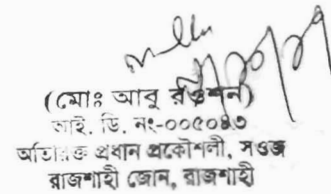 (মোঃ আবু রওশন)
আই. ডি. নং-০০৫০৪৩
অতিরিক্ত প্রধান প্রকৌশলী, সওজ
রাজশাহী জোন, রাজশাহী